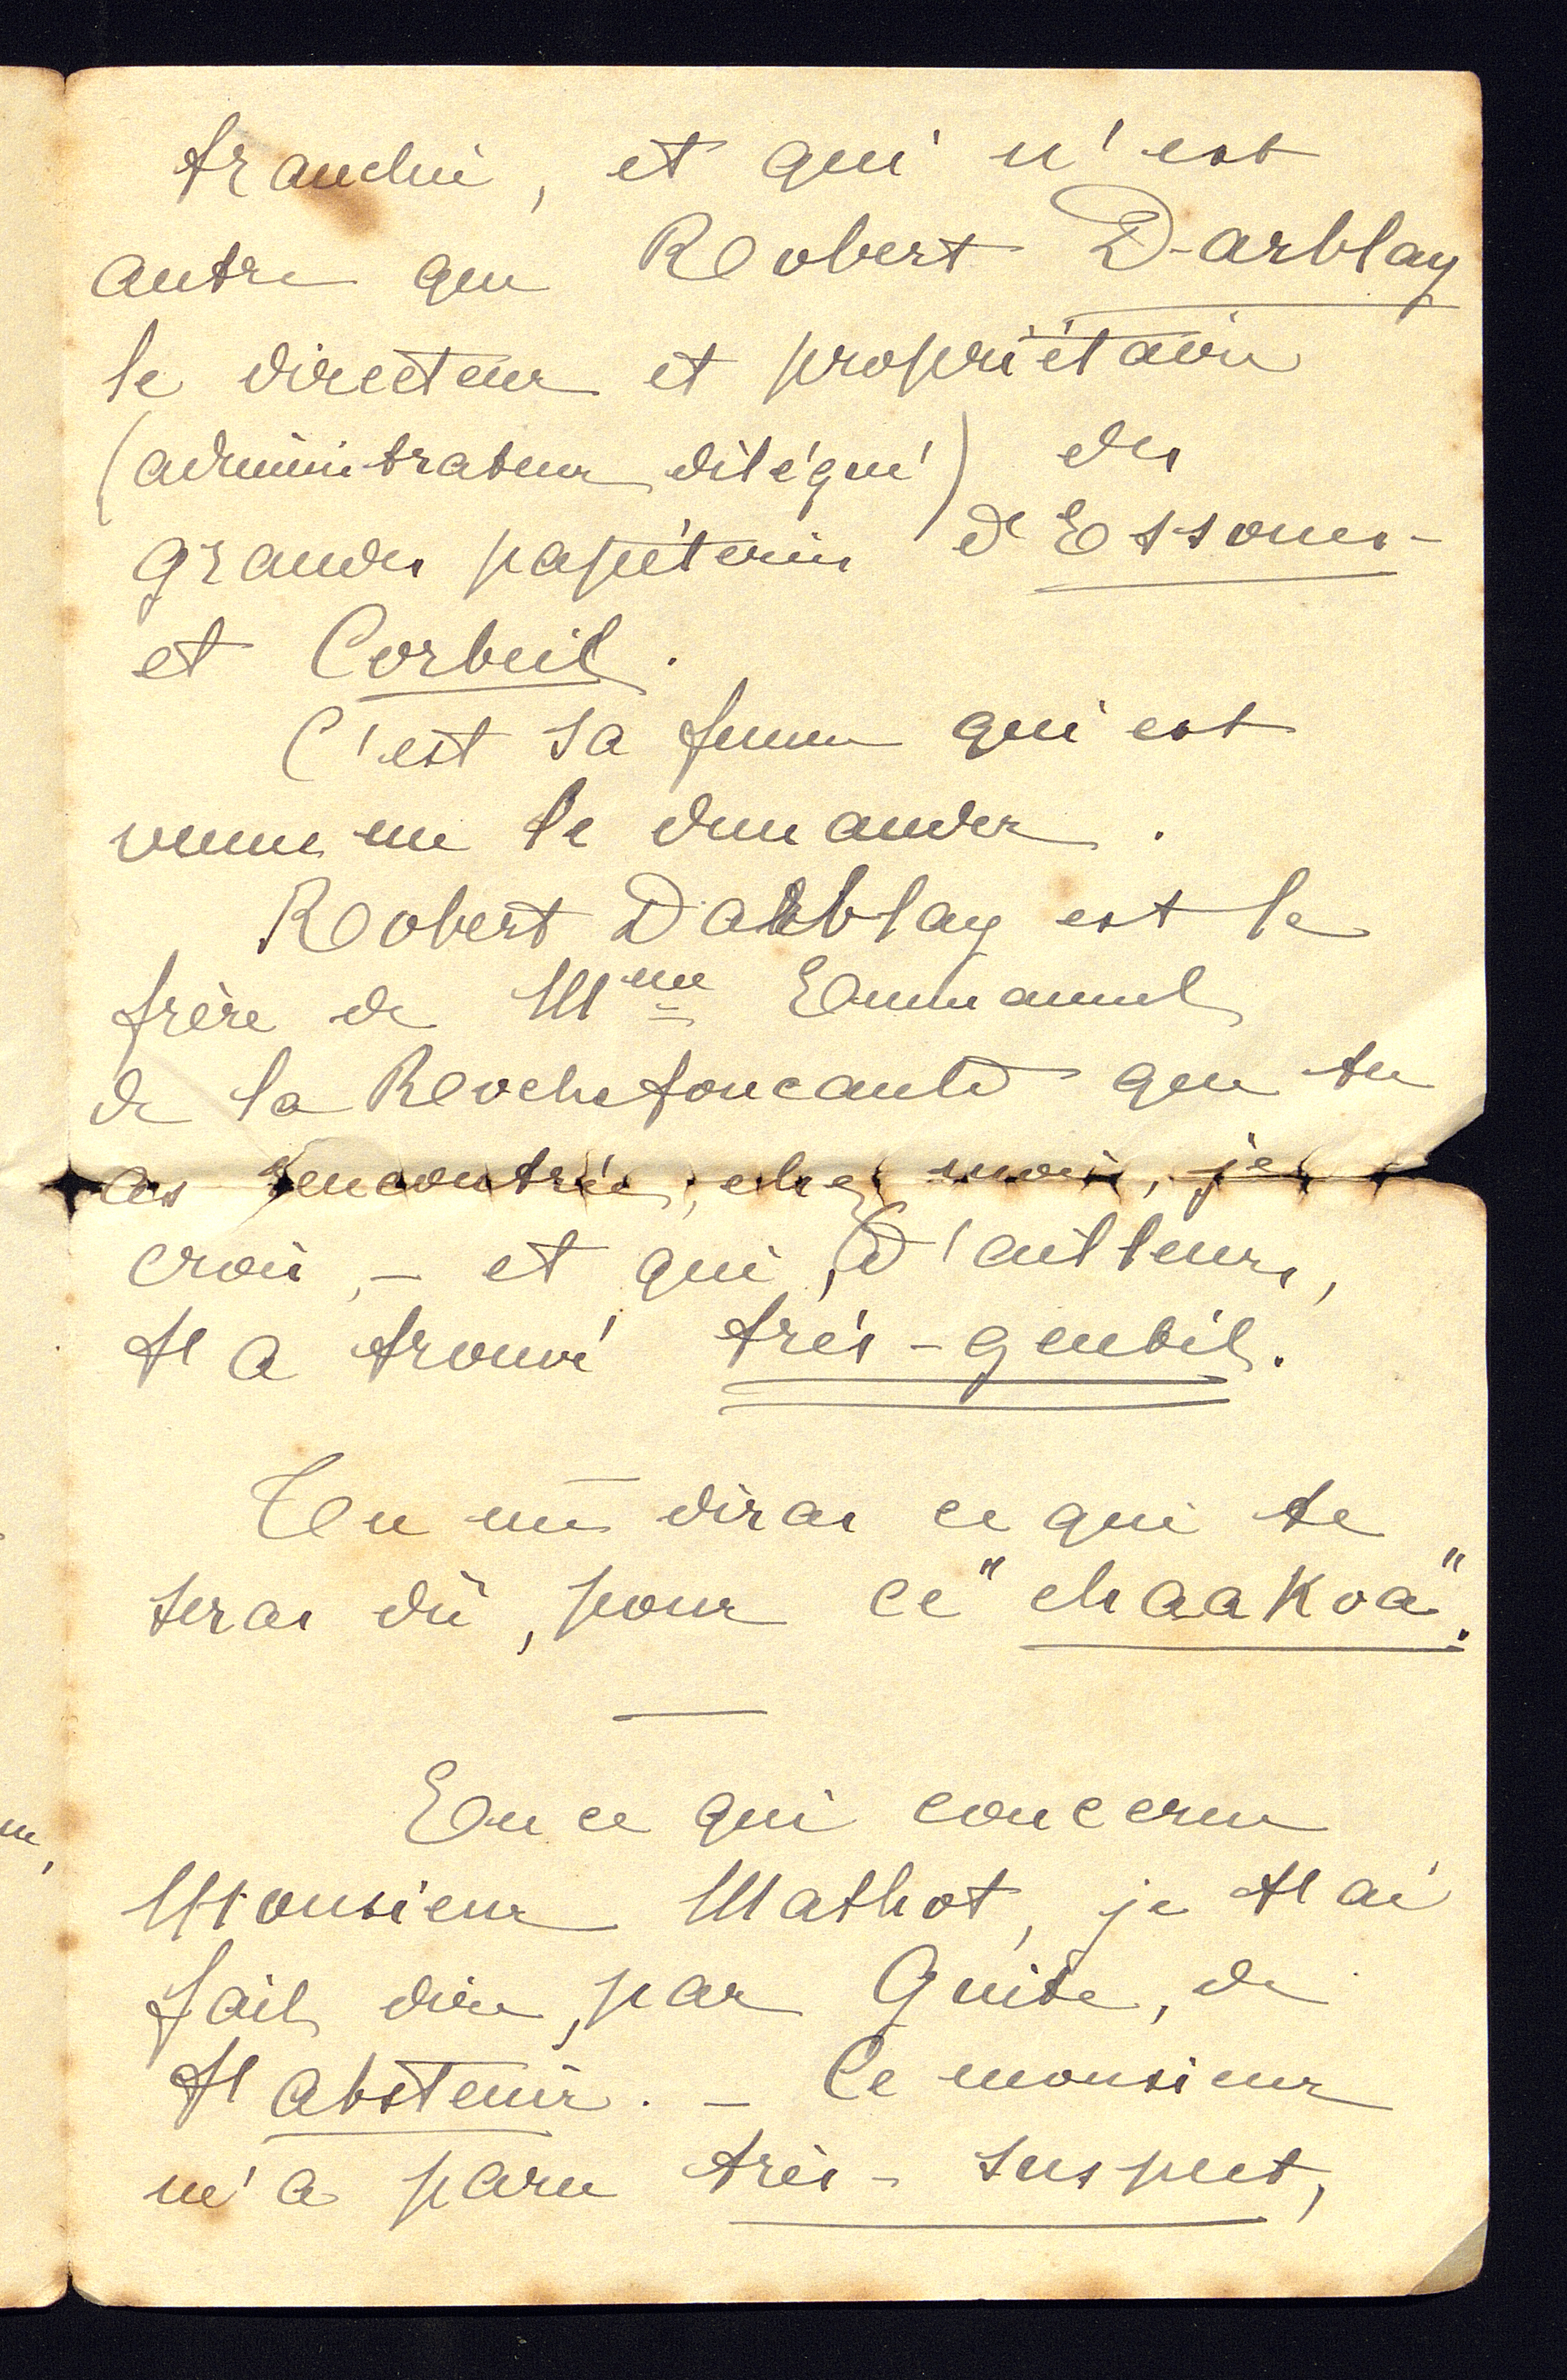 franchir, et qui n'est
autre que Robert Darblay
le directeur et propriétaire
(administrateur délégué) des
grandes papéteries d'Essones-
et Corbeil.
C'est sa femme qui est
venue me le demander.
Robert Darblay est le
frère de Mme Emmanuel
de la Rochefoucauld que tu
as rencontrée, chez moi, je
crois, - et qui, d'ailleurs,
t'a trouvé très-gentil.
Tu me diras ce qui te
seras dû, pour ce "chaakoa".
En ce qui concerne
Monsieur Mathot, je t'ai
fait dire, par Guite, de
t'abstenir. - Ce monsieur
m'a paru très-suspect,